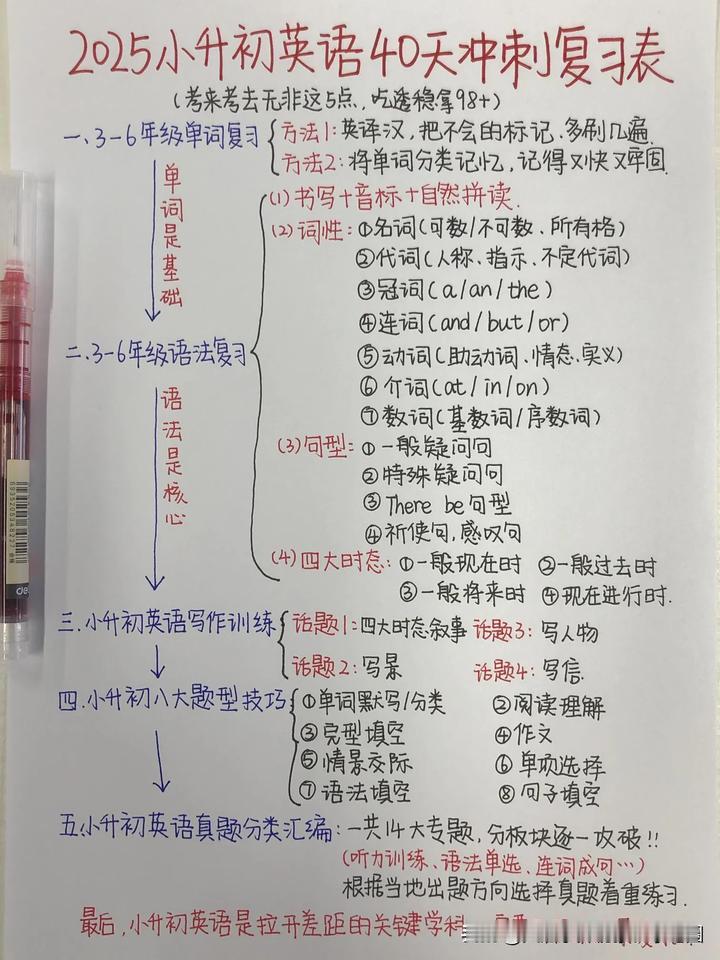 2025小升初英语40天冲刺复习表
(考来考去无非这5点,吃透稳拿98+)
一、3-6年级单词复习
方法1:英译汉,把不会的标记、多刷几遍.
方法2:将单词分类记忆,记得又快又牢固.
单词是基础
二、3-6年级语法复习
(1)书写+音标+自然拼读.
(2)词性:①名词(可数/不可数、所有格)
②代词(人称、指示、不定代词)
③冠词(a/an/the)
④连词(and/but/or)
⑤动词(助动词、情态、实义)
⑥介词(at/in/on)
⑦数词(基数词/序数词)
(3)句型:①一般疑问句
②特殊疑问句
③There be句型
④祈使句,感叹句
(4)四大时态:①一般现在时 ②一般过去时
③一般将来时 ④现在进行时.
语法是核心
三.小升初英语写作训练
话题1:四大时态叙事 话题3:写人物
话题2:写景 话题4:写信.
四.小升初八大题型技巧
①单词默写/分类 ②阅读理解
③完型填空 ④作文
⑤情景交际 ⑥单项选择
⑦语法填空 ⑧句子填空
五.小升初英语真题分类汇编:一共14大专题,分板块逐一攻破!!
(听力训练、语法单选、连词成句…)
根据当地出题方向选择真题着重练习.
最后,小升初英语是拉开差距的关键学科
6935205348227